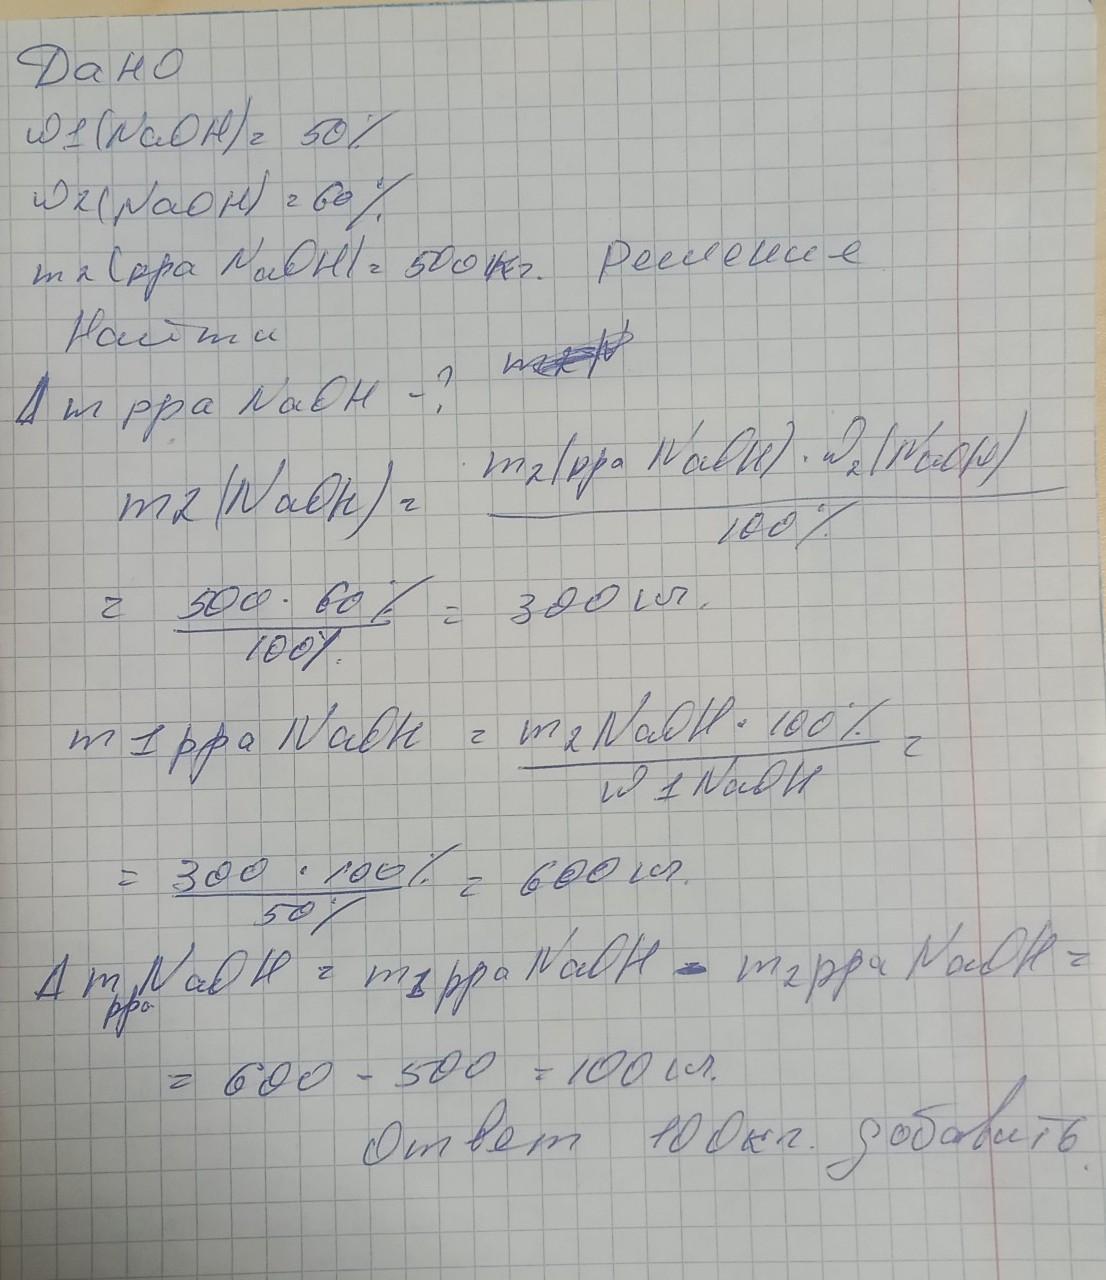 Дано
ω1(NaOH)= 50%
ω2(NaOH) = 60%
m2(рра NaOH)= 500кг. Решение
Найти
Δ m рра NaOH -?
m2(NaOH)= m2(рра NaOH) · ω2(NaOH)
100%
= 500 · 60% = 300 кг.
100%.
m 1 рра NaOH = m2NaOH · 100% =
ω 1 NaOH
= 300 · 100% = 600 кг.
50%
Δ m рра NaOH = m1 рра NaOH - m2 рра NaOH =
= 600 - 500 = 100 кг.
Ответ 100кг. добавить.